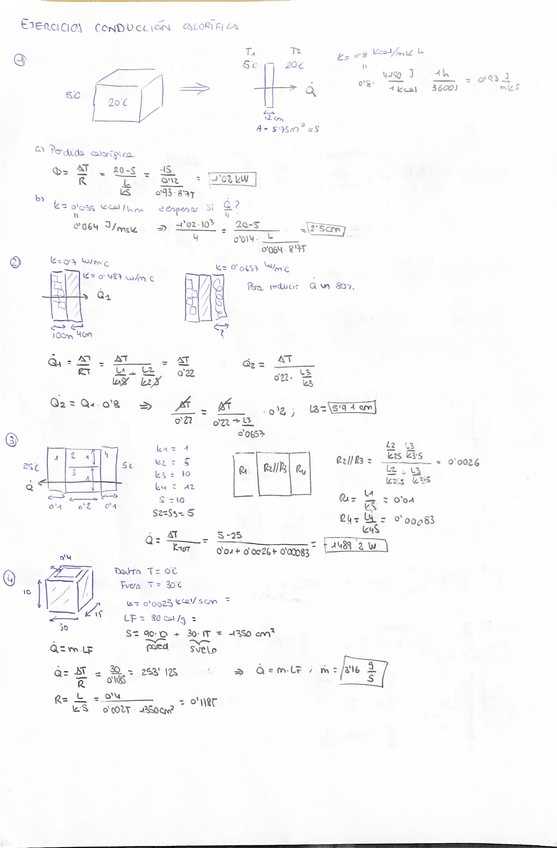 EJERCICIOS CONDUCCIÓN CALORÍFICA
1
T1 T2
5C 20C
5C 20C
Q̇
12cm
A = 5'75m² = S
k = 0'8 kcal/msk h
0'8 · 4180 J / 1 kcal · 1h / 3600s = 0'93 J / mks
a) Perdida calorífica
Φ = ΔT / R = 20-5 / (L / kS) = 15 / (0'12 / 0'93·8'75) = 1'02 kW
b) k = 0'055 kcal/hm espesor si Q̇/4 ?
0'064 J/msk ⇒ 1'02·10³ / 4 = 20-5 / (0'014 · L / 0'064·8'75) = 2'5cm
2
k=0'7 W/m·c
k = 0'487 W/m·c
Q̇1
10cm 4cm
k = 0'0657 W/m·c
?
Para reducir Q̇ un 80%.
Q̇1 = ΔT / RT = ΔT / (L1 / k1S + L2 / k2S) = ΔT / 0'22
Q̇2 = ΔT / (0'22 · L3 / k3)
Q̇2 = Q1 0'8 ⇒ ΔT / 0'22 = ΔT / (0'22 + L3 / 0'0657) · 0'2 ; L3 = 5'91 cm
3
25C 1 2 3 4 5C
1
1
Q̇
0'1 0'2 0'1
k1 = 1
k2 = 5
k3 = 10
k4 = 12
S = 10
S2=S3 = 5
R1 R2//R3 R4
R2//R3 = (L2 / k2S · L3 / k3·S) / (L2 / k2·S + L3 / k3·S) = 0'0026
R1 = L1 / k1S = 0'01
R4 = L4 / k4S = 0'00083
Q̇ = ΔT / RTOT = 5-25 / 0'01 + 0'0026 + 0'00083 = -1489'2 W
4
0'4
10
30
15
Dentro T = 0C
Fuera T = 30C
k = 0'0025 kcal/scm =
LF = 80 cal/g =
S = 90·10 + 30·15 = 1350 cm²
pared suelo
Q̇ = m·LF
Q̇ = ΔT / R = 30 / 0'1185 = 253'125 ⇒ Q̇ = m·LF ; ṁ = 3'16 g/s
R = L / k·S = 0'4 / 0'0025 1350cm² = 0'1185